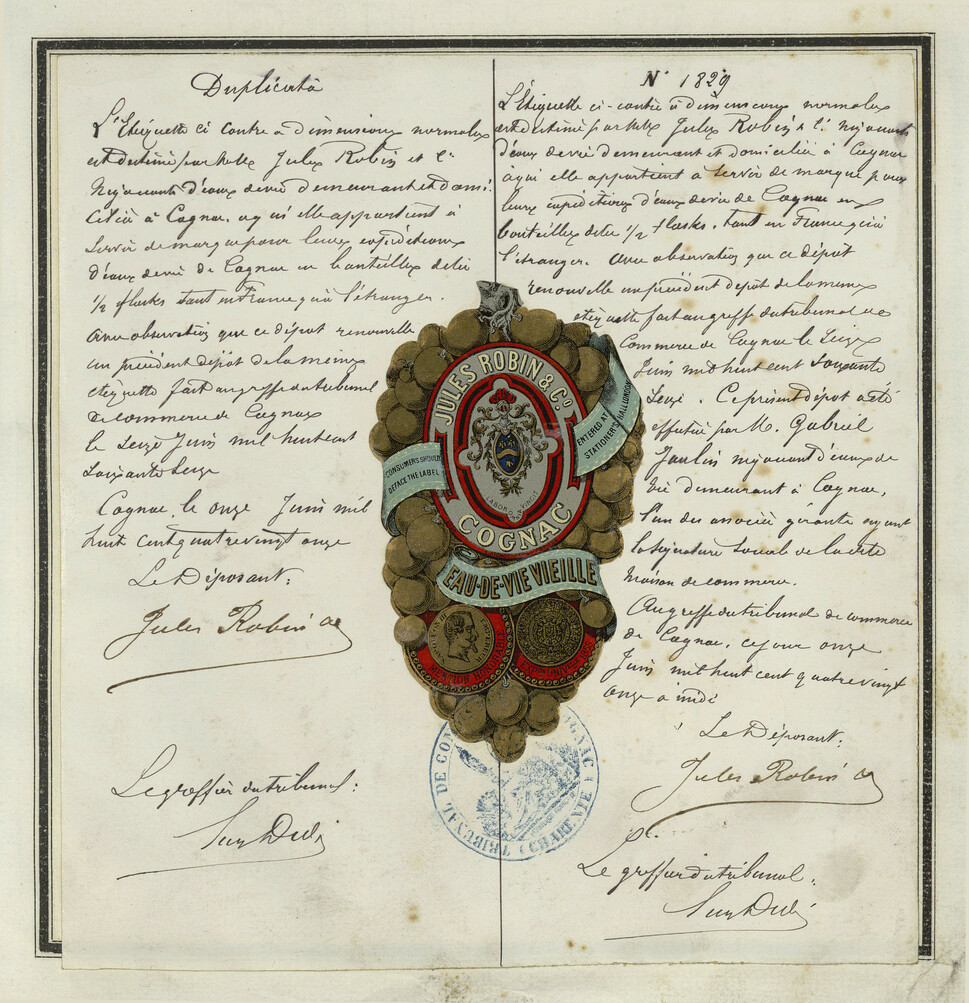 Duplicata
L'Etiquette ci contre à dimensions normales
est destinée par MM Jules Robin et Cie
Négociants d'eaux de vie demeurant et domi
ciliés à Cognac, à qui elle appartient à
servir de marque pour leurs expéditions
d'eaux de vie de Cognac en bouteilles et les
1/2 flasks tant en France qu'à l'étranger.
Avec observation que ce dépôt renouvelle
un précédent dépôt de la même
étiquette fait au greffe du tribunal
de commerce de Cognac
le seize Juin mil huit cent
soixante seize
Cognac, le onze Juin mil
huit cent quatre vingt onze
Le Déposant:
Jules Robin &
Le greffier du tribunal:
N° 1829
L'Etiquette ci-contre à dimensions normales
est destinée par MM Jules Robin & Cie Négociants
d'eaux de vie demeurant et domiciliés à Cognac
à qui elle appartient à servir de marque pour
leurs expéditions d'eaux de vie de Cognac en
bouteilles et les 1/2 flasks, tant en France qu'à
l'étranger. Avec observation que ce dépôt
renouvelle un précédent dépôt de la même
étiquette fait au greffe du tribunal de
Commerce de Cognac le seize
Juin mil huit cent soixante
seize. Ce présent dépôt a été
effectué par M. Gabriel
négociant d'eaux de
vie demeurant à Cognac,
l'un des associés gérants ayant
la signature sociale de la dite
maison de commerce.
Au greffe du tribunal de commerce
de Cognac, ce jour onze
Juin mil huit cent quatre vingt
onze à midi
Le Déposant:
Jules Robin &
Le greffier du tribunal:
JULES ROBIN & Co
CONSUMERS SHOULD
DEFACE THE LABEL
ENTERED AT
STATIONER'S HALL LONDON
COGNAC
EAU-DE-VIE VIEILLE
TRIBUNAL DE COGNAC (CHARENTE)